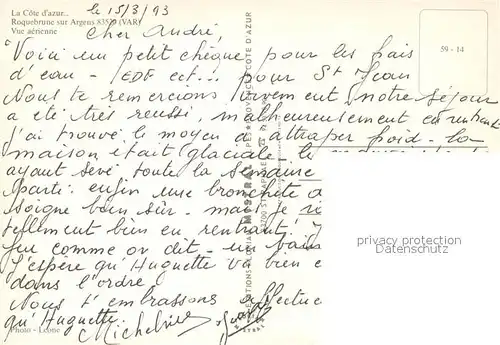 La Côte d'azur...
Roquebrune sur Argens 83520 (VAR)
Vue aérienne
le 15/3/93
59 - 14
Cher André,
Voici un petit chèque pour les frais
d'eau - EDF ect... pour St Jean
Nous te remercions vivement notre séjour
a été très reussi, malheureusement en rentrant
j'ai trouvé le moyen d attraper froid - la
maison était glaciale - le
ayant sevi toute la semaine
Parti : enfin une bronchite
soigne bien sûr - mais je
tellement bien en rentrant,
feu comme on dit - un bain
J'espère qu'Huguette va bien
dans l'ordre,
Nous t'embrassons affectue
qu'Huguette.
Micheline
Photo - Leone
MISTRAL
privacy protection
watermark